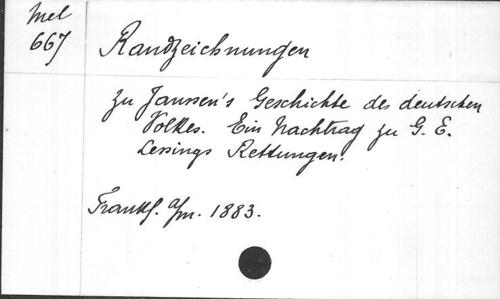 Mel
667
Randzeichnungen
zu Janssen's Geschichte des deutschen
Volkes. Ein Nachtrag zu G. E.
Lessings Rettungen.
Frankf. a/m. 1883.